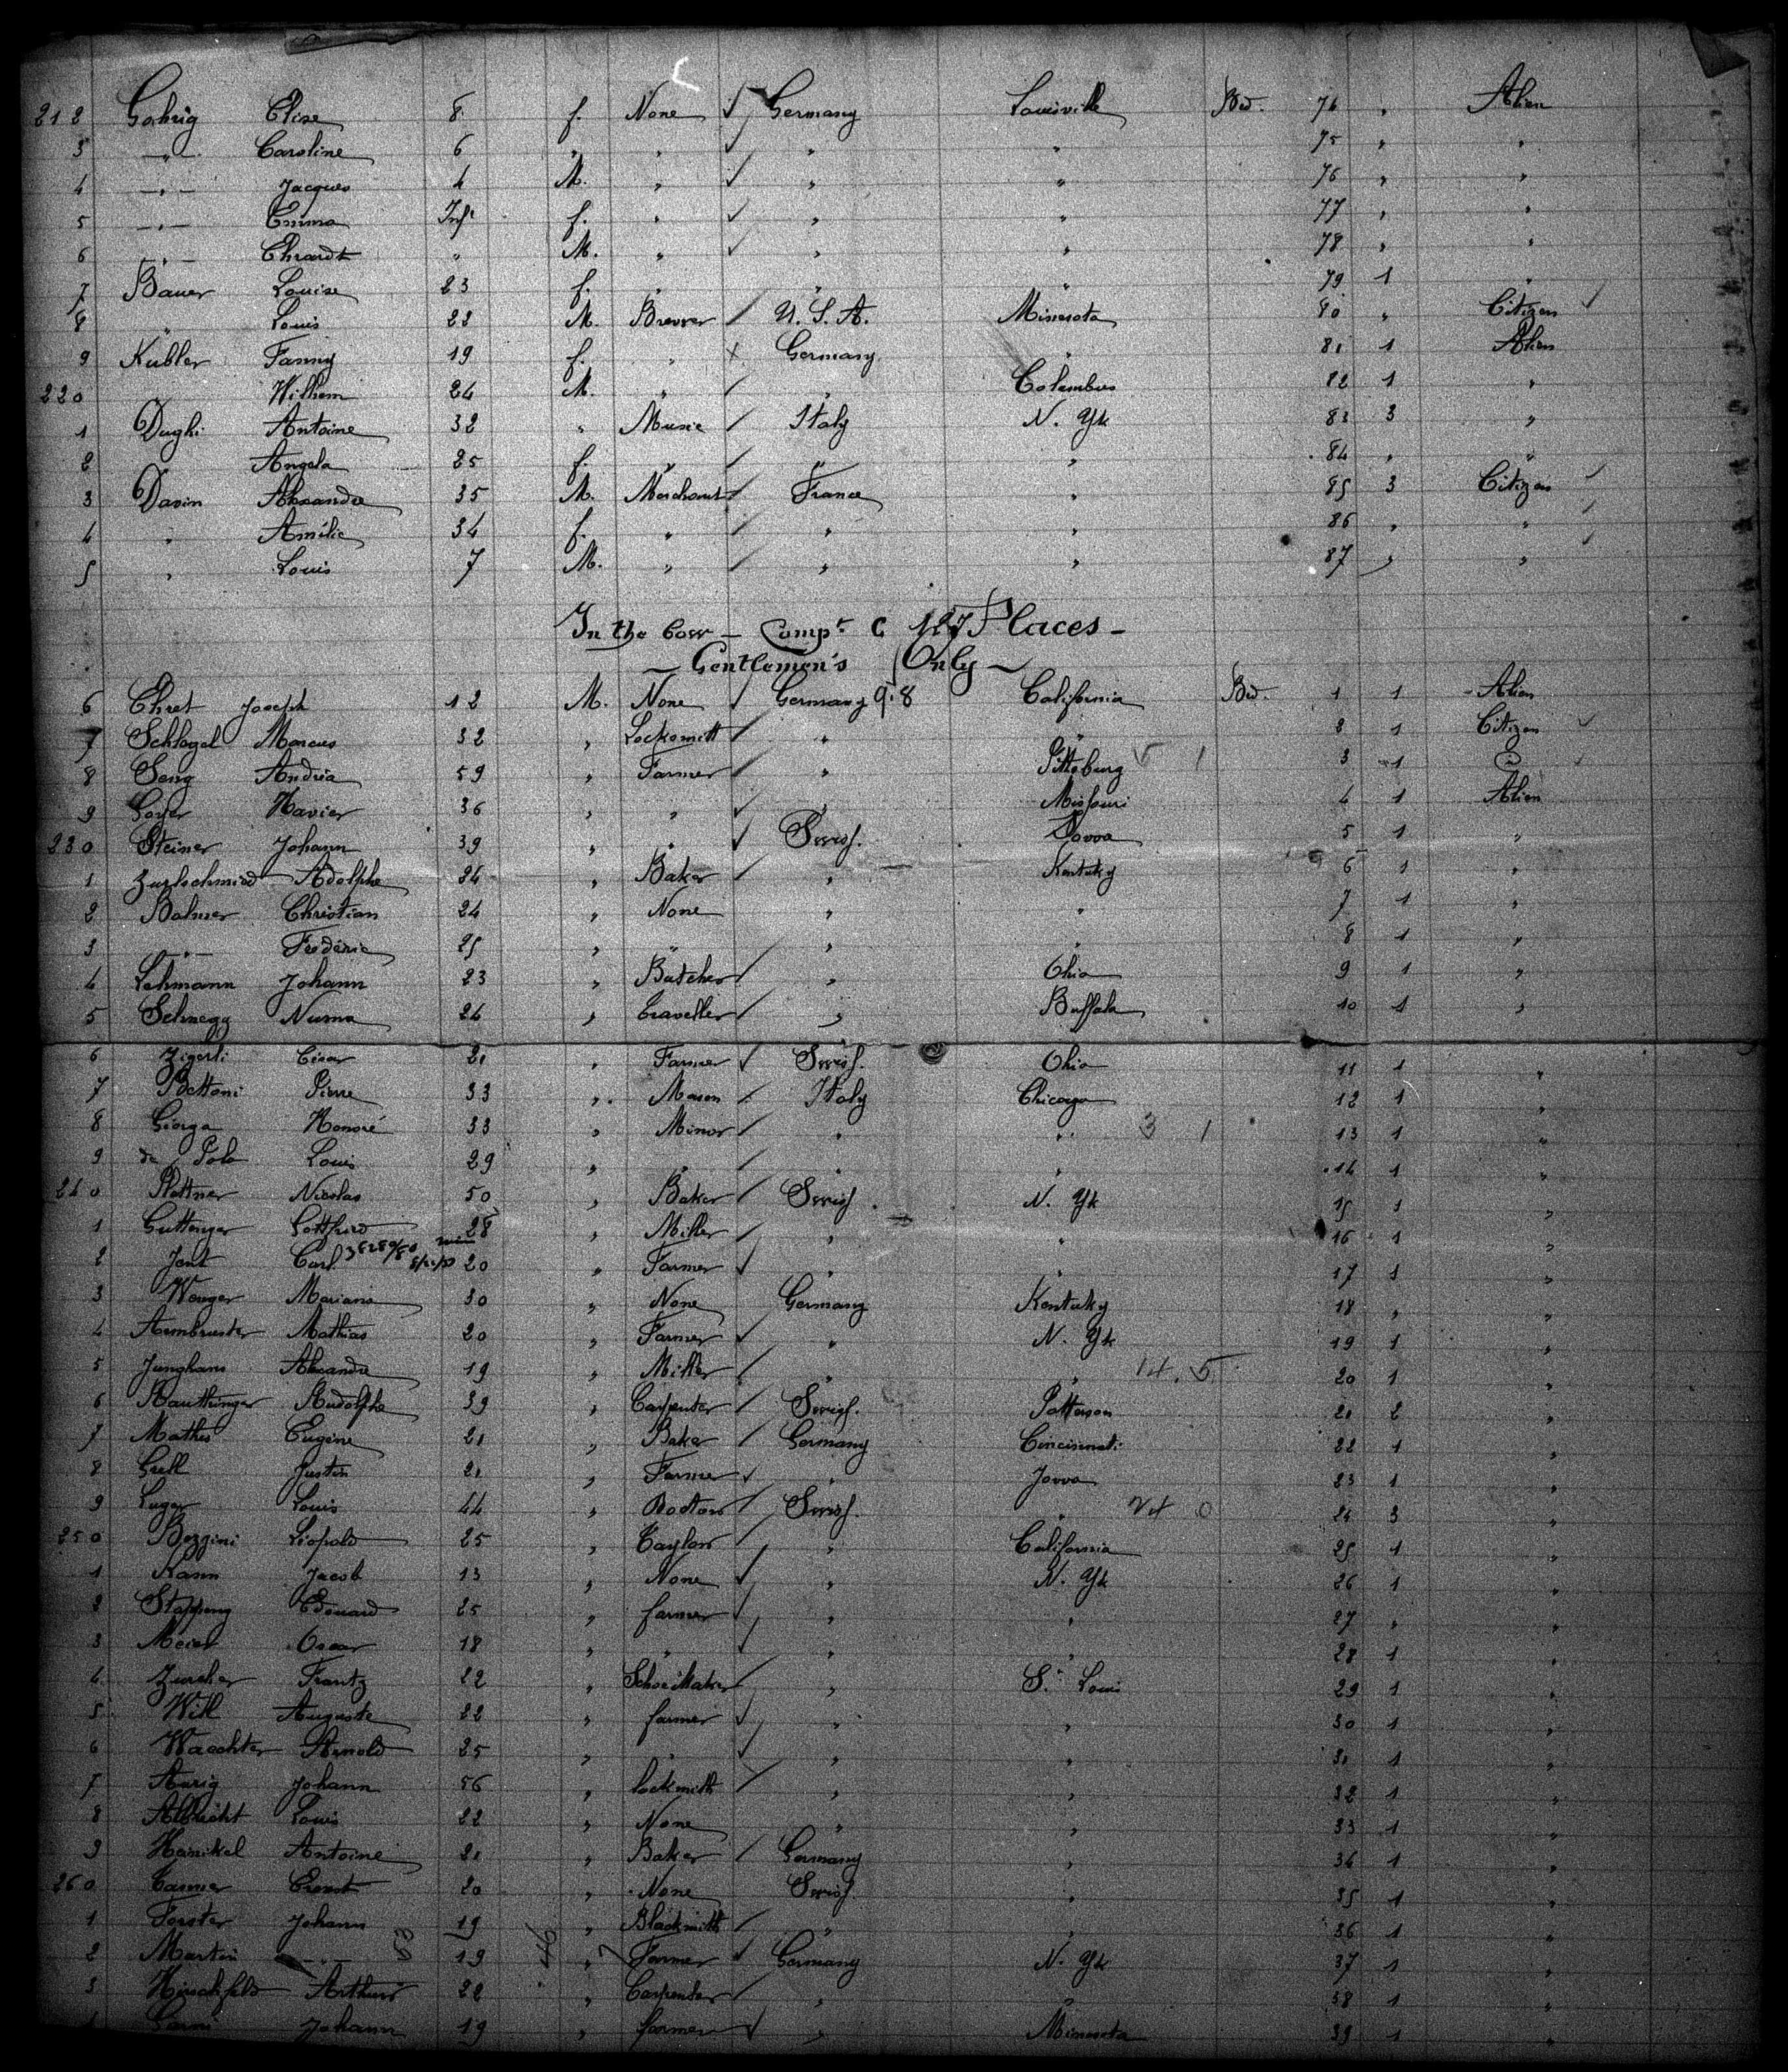 212 Gohrig Elise 8 f. None Germany Louisville Bd. 74 " Alien
3 " Caroline 6 " " " " 75 " "
4 " Jacques 4 M. " " " 76 " "
5 " Emma Inft f. " " " 77 " "
6 " Ehrardt " M. " " " 78 " "
7 Bauer Louise 23 f. " " " 79 1 "
8 " Louis 22 M. Brewer U. S. A. Minesota 80 " Citizen
9 Kubler Fanny 19 f. " Germany " 81 1 Alien
220 " Wilhem 24 M. " " Columbus 82 1 "
1 Dughi Antoine 32 " Music Italy N. Yk 83 3 "
2 Angela 25 f. " " " 84 " "
3 Davin Alexandre 35 M. Merchant France " 85 3 Citizen
4 " Amélie 34 f. " " " 86 " "
5 " Louis 7 M. " " " 87 " "
In the bow - Compt C 127 Places -
- Gentlemen's Only -
6 Ehret Joseph 12 M. None Germany 9.8 California Bd. 1 1 Alien
7 Schlagel Marcus 32 " Locksmitt " " 2 1 Citizen
8 Seng Andréa 59 " Farmer " Pittsburg 3 1
9 Goyer Xavier 36 " " " Missouri 4 1 Alien
230 Steiner Johann 39 " " Swiss. Iowa 5 1 "
1 Adolphe 24 " Baker " Kentuky 6 1 "
2 Balmer Christian 24 " None " " 7 1 "
3 " Frédéric 25 " " " " 8 1 "
4 Lehmann Johann 23 " Butcher " Ohio 9 1 "
5 Schnegg Numa 26 " Traveller " Buffalo 10 1 "
6 Zigerli César 21 " Farmer Swiss. Ohio 11 1 "
7 Bettoni Pierre 33 " Mason Italy Chicago 12 1 "
8 Giorga Honoré 33 " Minor " " 3 1 13 1 "
9 de Polo Louis 29 " " " " 14 1 "
240 Plattner Nicolas 50 " Baker Swiss. N. Yk 15 1 "
1 Guttenger Gottfried 28 " Miller " " 16 1 "
2 Jent Carl 20 " Farmer " " 17 1 "
3 Wenger Mariano 30 " None Germany Kentuky 18 " "
4 Armbruster Mathias 20 " Farmer " N. Yk 19 1 "
5 Junghans Alexandre 19 " Miller " " 20 1 "
6 Rudolphe 39 " Carpenter Swiss. Patterson 21 2 "
7 Mathis Eugène 21 " Baker Germany Cincinnati 22 1 "
8 Grell Justin 21 " Farmer " Jowa 23 1 "
9 Luger Louis 44 " Doctors Swiss. " 24 3 "
250 Bezzini Léopold 25 " Taylor " California 25 1 "
1 Kann Jacob 13 " None " N. Yk 26 1 "
2 Edouard 25 " farmer " " 27 " "
3 Meier Oscar 18 " " " " 28 1 "
4 Zurcher Frantz 22 " SchoeMaker " St Louis 29 1 "
5 Will Auguste 22 " farmer " " 30 1 "
6 Waechter Arnold 25 " " " " 31 1 "
7 Aurig Johann 56 " lockmith " " 32 1 "
8 Albrecht Louis 22 " None " " 33 1 "
9 Hanikel Antoine 21 " Baker Germany " 34 1 "
260 Ernest 20 " None Swiss. " 35 1 "
1 Forster Johann 19 " Blacksmith " " 36 1 "
2 Martin " 19 " Farmer Germany N. Yk 37 1 "
3 Hirschfeld Arthur 22 " Carpenter " " 38 1 "
Johann 19 " farmer " Minesota 39 1 "